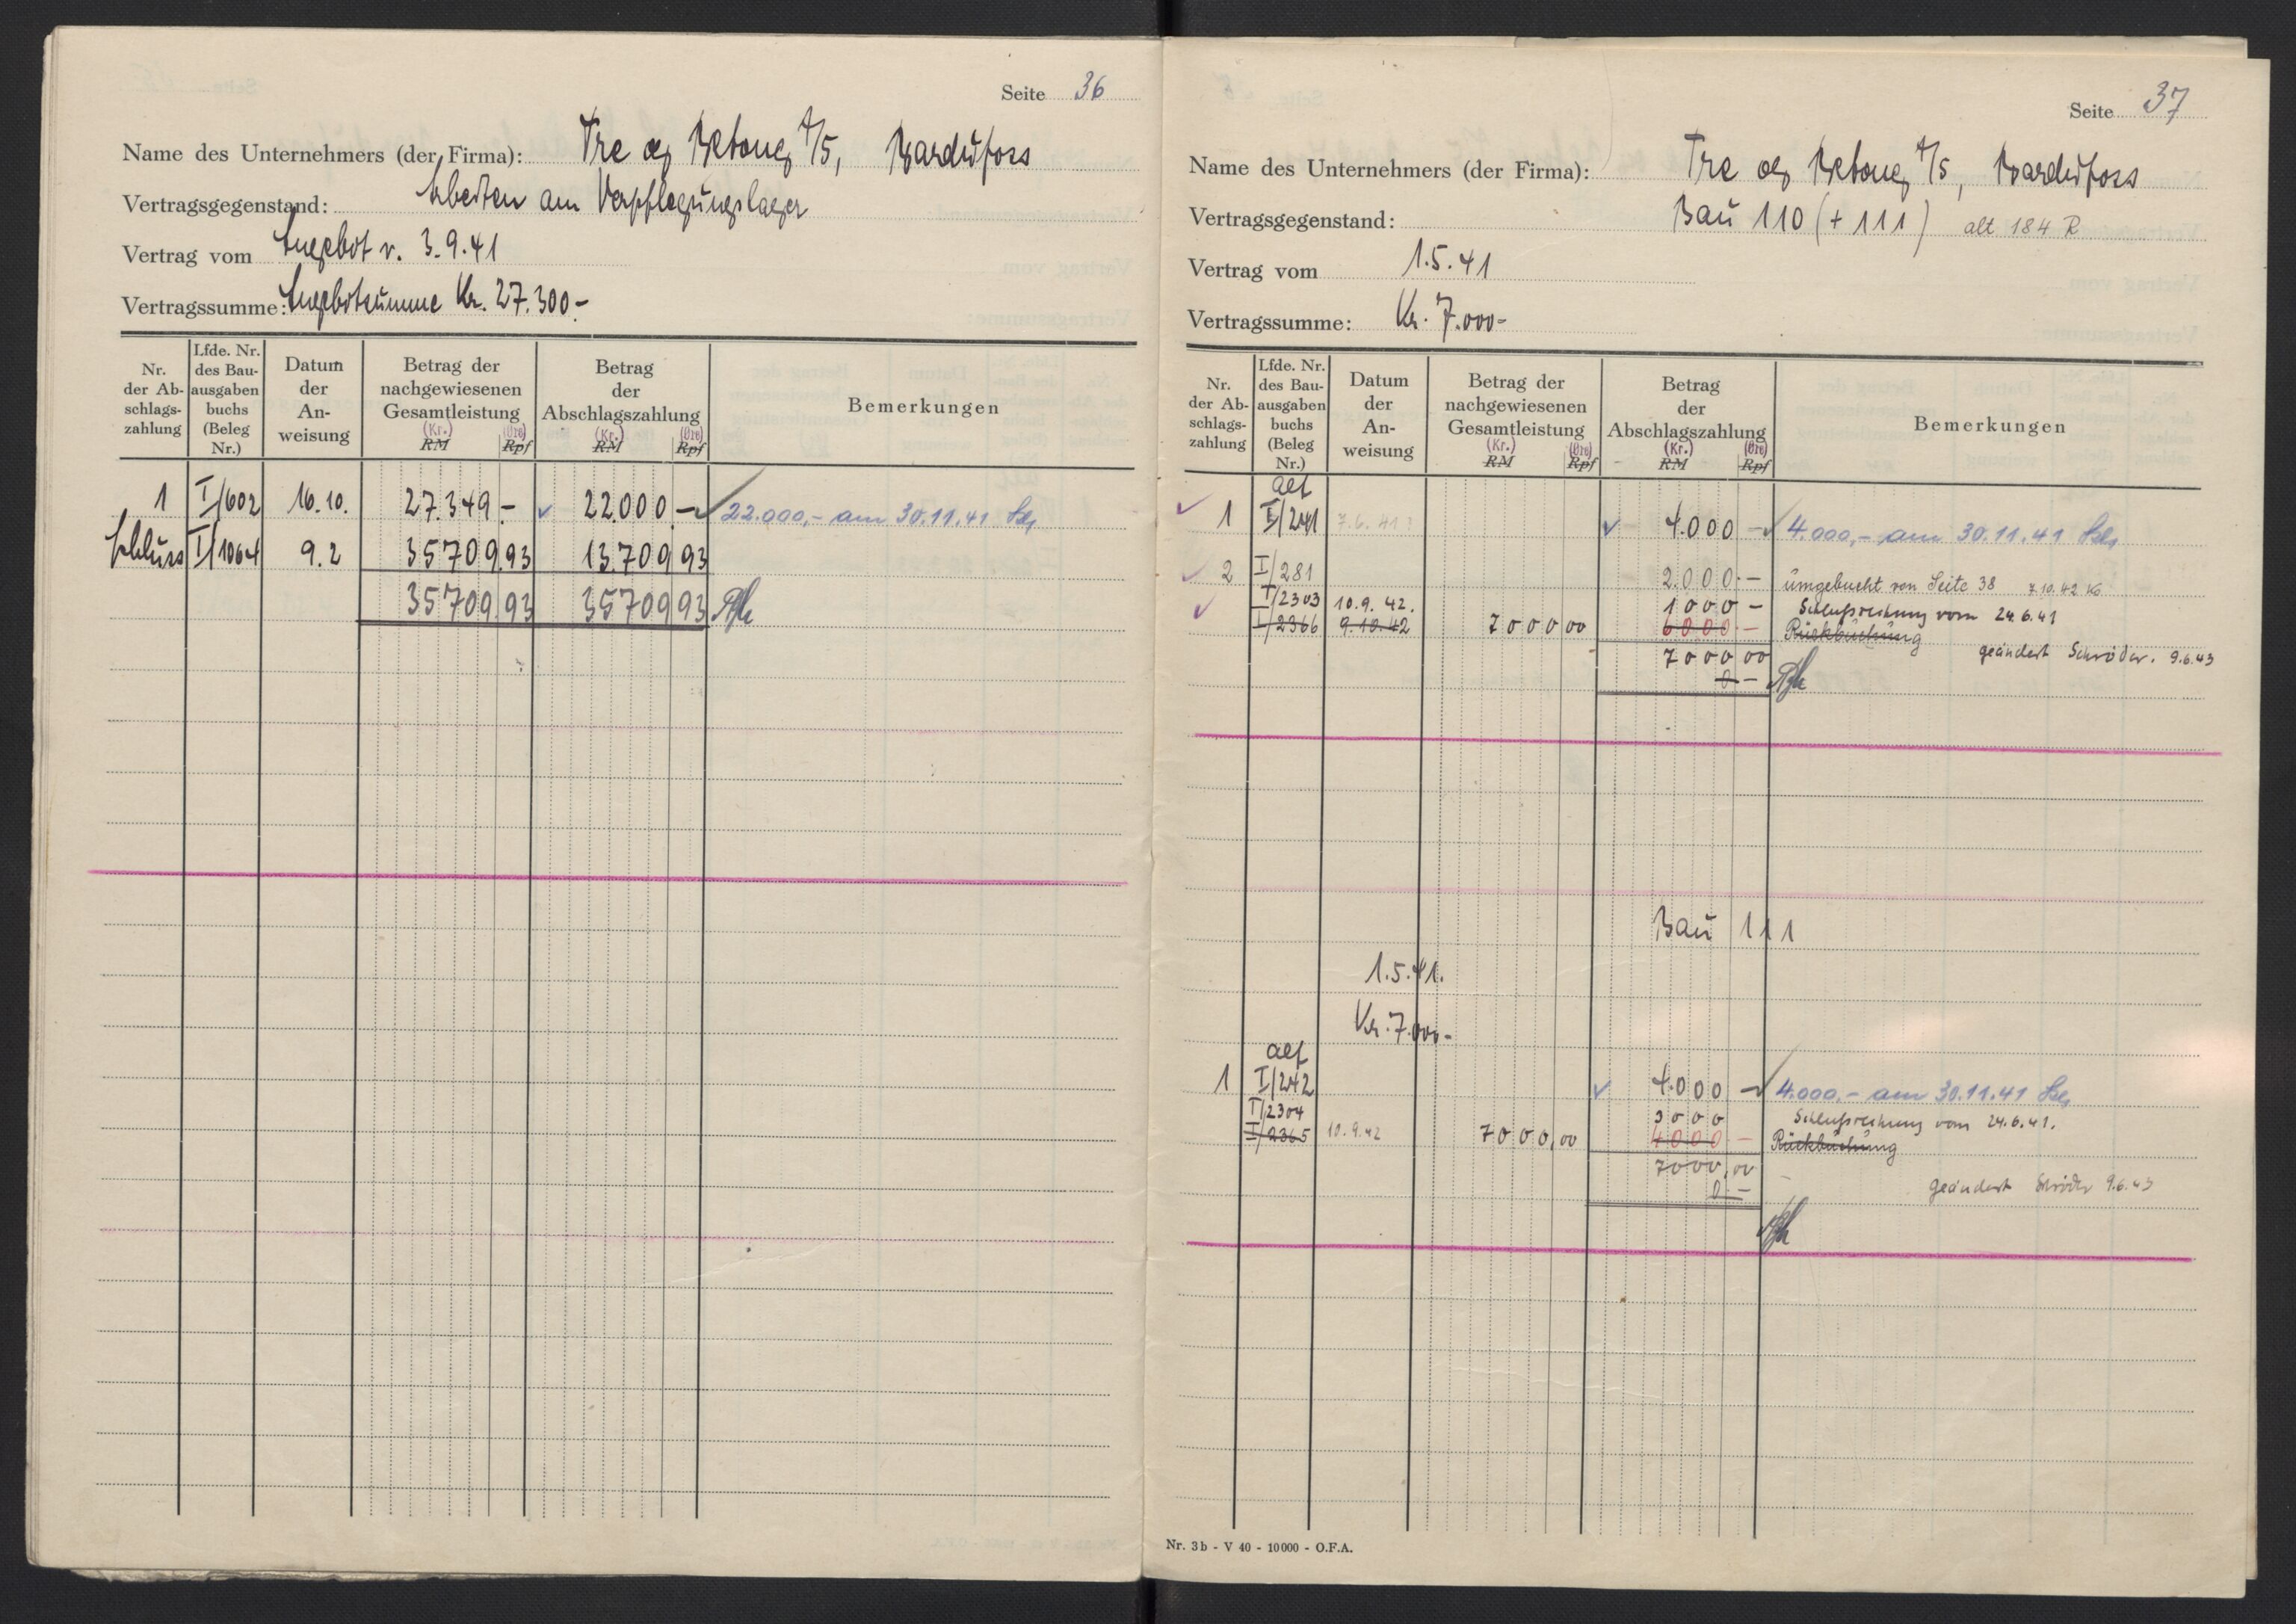 Seite 36
Name des Unternehmers (der Firma): Tre og Betong A/S, Bardufoss
Vertragsgegenstand: Arbeiten am Verpflegungslager
Vertrag vom Angebot v. 3.9.41
Vertragssumme: Angebotsumme Kr. 27.300.-
Nr. der Abschlagszahlung | Lfde. Nr. des Bauausgabenbuchs (Beleg Nr.) | Datum der Anweisung | Betrag der nachgewiesenen Gesamtleistung (Kr.) RM (Öre) Rpf | Betrag der Abschlagszahlung (Kr.) RM (Öre) Rpf | Bemerkungen
1 I/602 16.10. 27.349.- 22.000.- 22.000,- am 30.11.41
Schluss I/1064 9.2 35709.93 13.709 93
35709.93 35709 93
Seite 37
Name des Unternehmers (der Firma): Tre og Betong A/S, Bardufoss
Vertragsgegenstand: Bau 110 (+ 111) alt 184 R
Vertrag vom 1.5.41
Vertragssumme: Kr. 7.000-
Nr. der Abschlagszahlung | Lfde. Nr. des Bauausgabenbuchs (Beleg Nr.) | Datum der Anweisung | Betrag der nachgewiesenen Gesamtleistung (Kr.) RM (Öre) Rpf | Betrag der Abschlagszahlung (Kr.) RM (Öre) Rpf | Bemerkungen
1 I/241 7.6.41 4.000 - 4.000,- am 30.11.41
2 I/281 2.000.- umgebucht von Seite 38 7.10.42
I/2303 10.9.42. 1000 - Schlußrechnung vom 24.6.41
I/2366 9.10.42 7000 00 6000.- Rückbuchung
7000 00 geändert Schröder. 9.6.43
0 -
Bau 111
1.5.41.
Kr. 7.000-
1 I/242 4.000 - 4.000.- am 30.11.41
I/2304 3000 Schlußrechnung vom 24.6.41.
I/2365 10.9.42 7000,00 4000 - Rückbuchung
7000,00
0 - geändert Schröder 9.6.43
Nr. 3b - V 40 - 10000 - O.F.A.